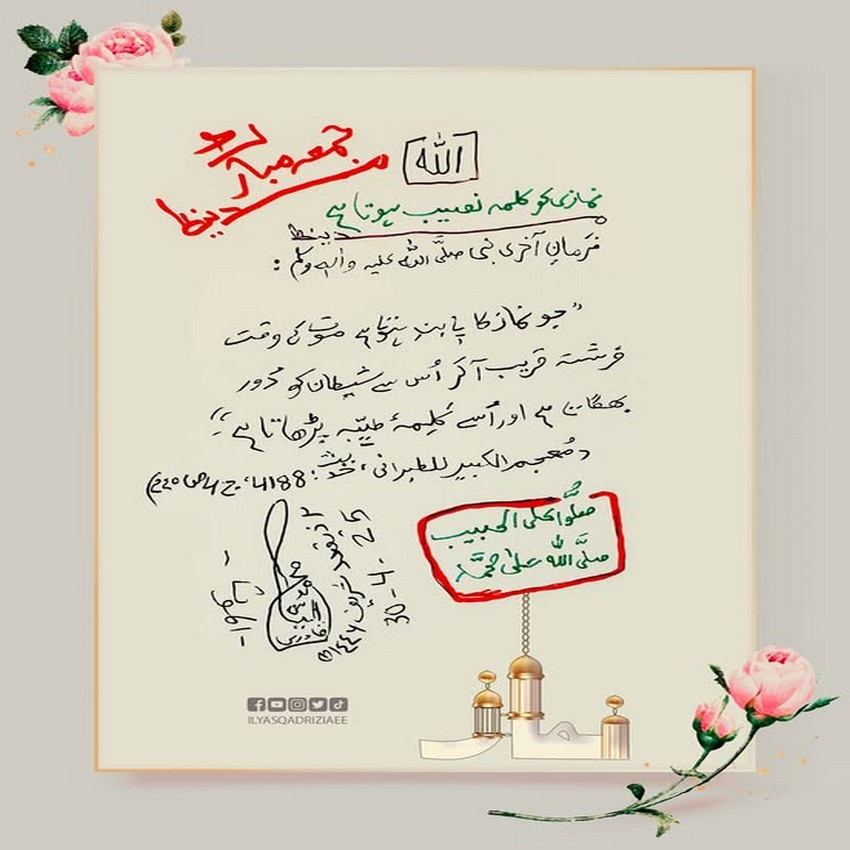 الله
جمعہ مبارک
مدینہ
نمازی کو کلمہ نصیب ہوتا ہے
مدینہ
فرمانِ آخری نبی صلَّی اللہ علیہ واٰلہٖ وسلم:
"جو نماز کا پابند ہوتا ہے موت کے وقت
فرشتہ قریب آکر اُس سے شیطان کو دُور
بھگاتا ہے اور اُسے کلِمۂ طیّبہ پڑھاتا ہے"
(مُعجم الکبیر للطبرانی، حدیث: 4188، ج 4 ص
صلُّوا علی الحبیب
صلَّی اللہ علٰی محمَّد
شریف ۱۴۴۶
30-4-
محمد الیاس
قادری
نماز
ILYASQADRIZIAEE